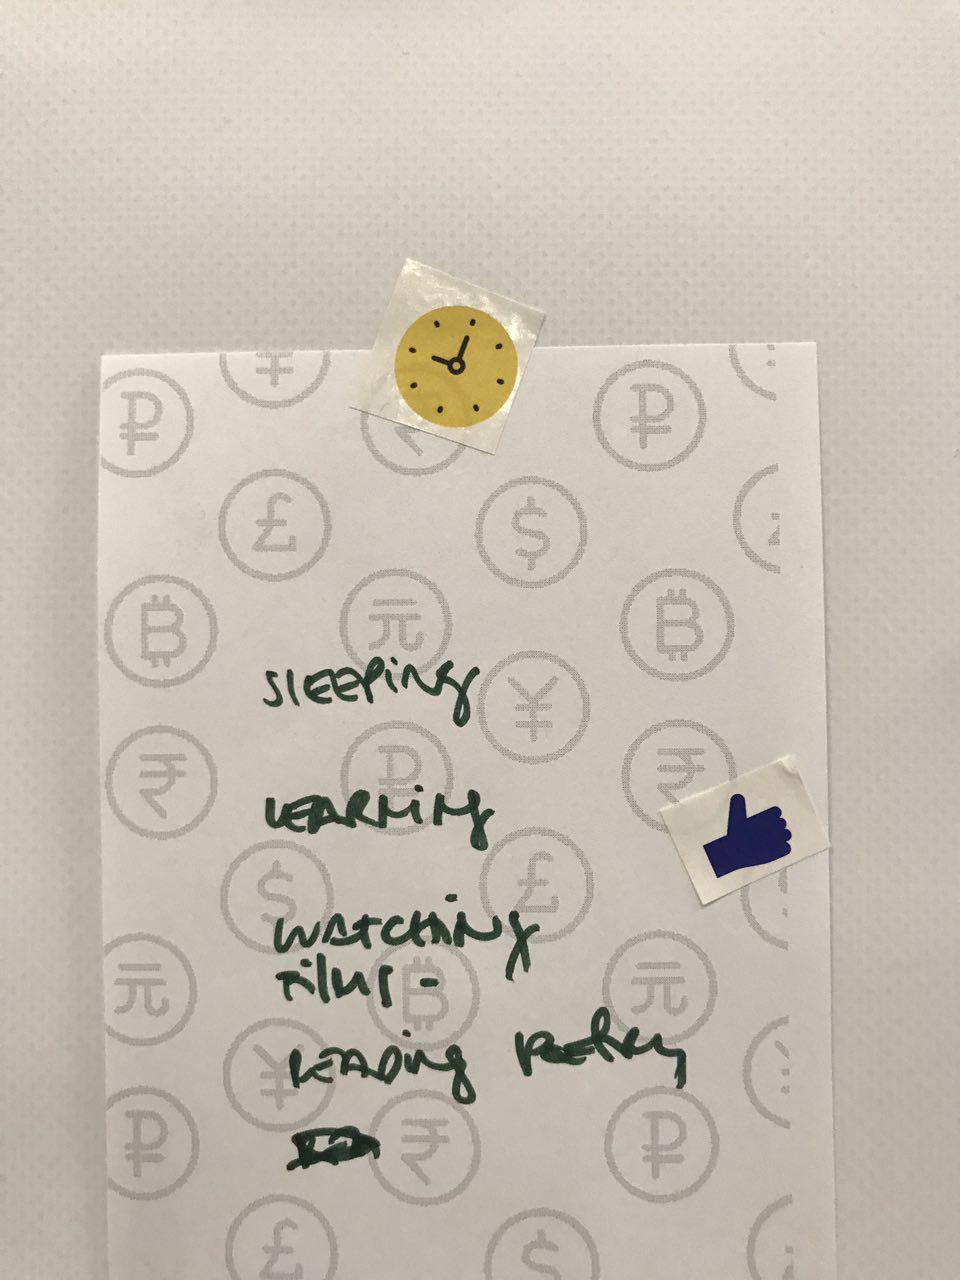 SLEEPING
LEARNING
WATCHING
FILMS -
READING POETRY